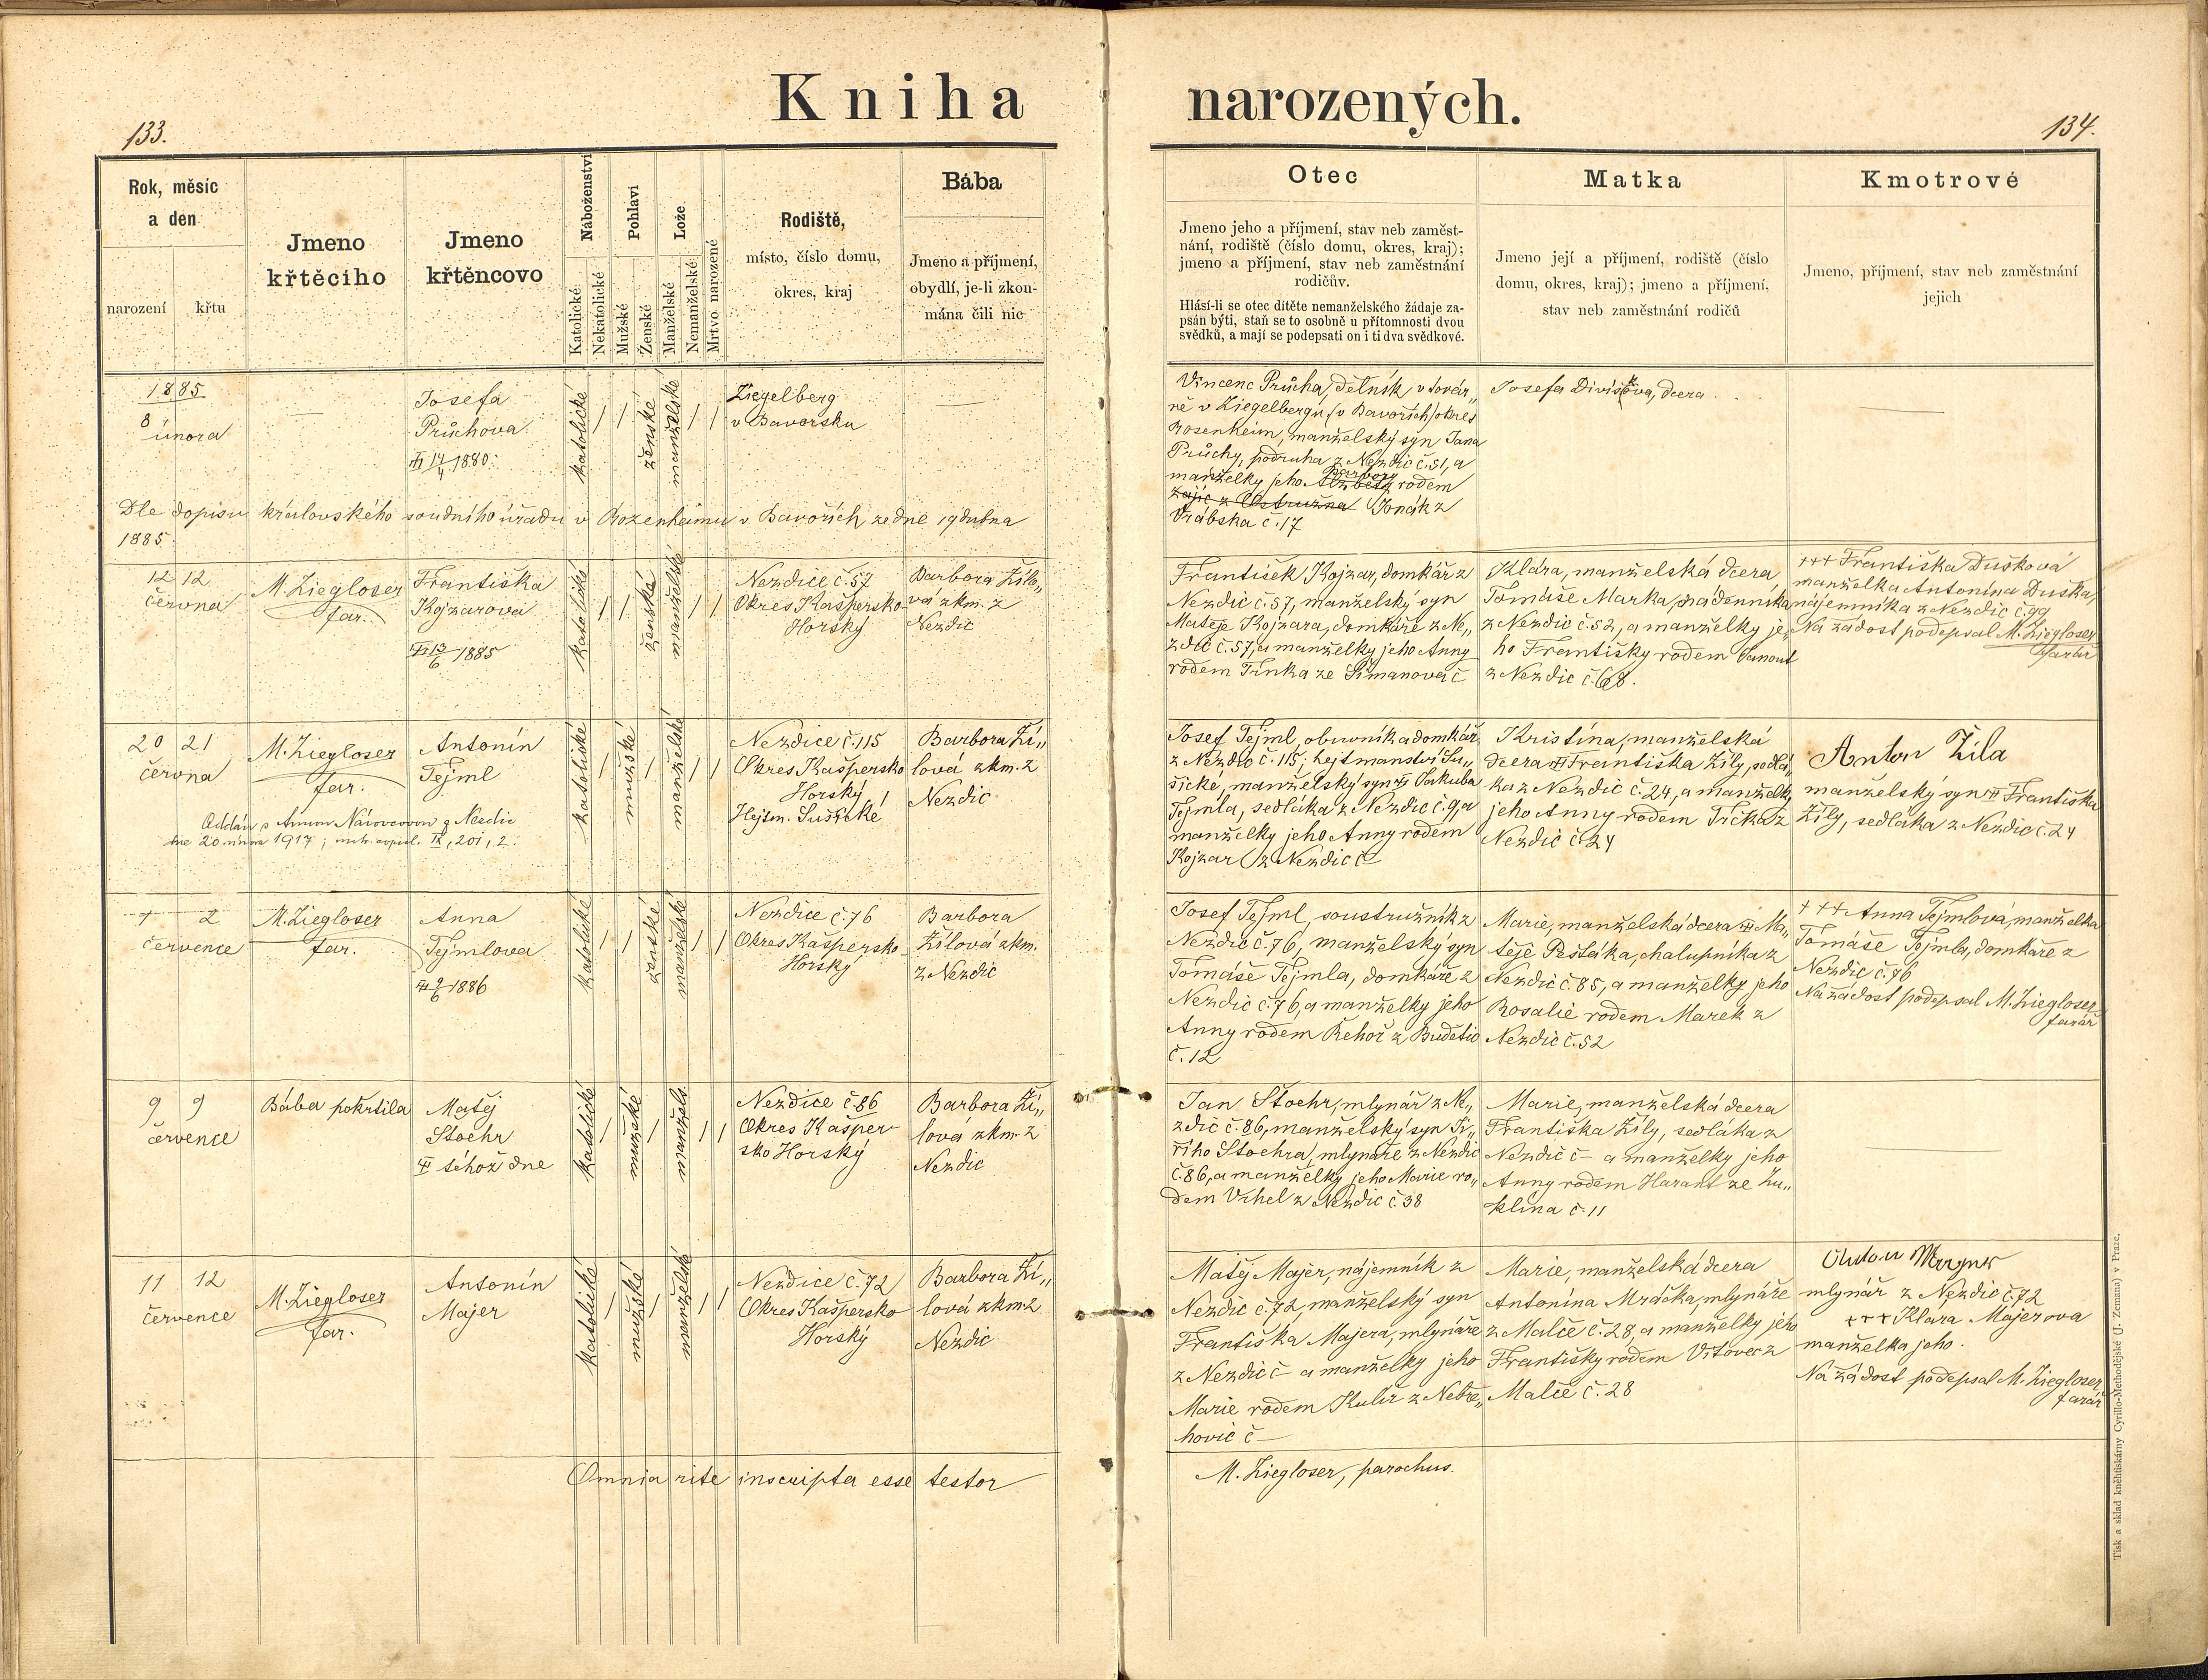 Kniha narozených.
133.
134.
Rok, měsíc
a den
narození
křtu
Jmeno
křtěcího
Jmeno
křtěncovo
Náboženství
Katolické
Nekatolické
Pohlaví
Mužské
Ženské
Lože
Manželské
Nemanželské
Mrtvo narozené
Rodiště,
místo, číslo domu,
okres, kraj
Bába
Jmeno a příjmení,
obydlí, je-li zkou-
mána čili nic
Otec
Jmeno jeho a příjmení, stav neb zaměst-
nání, rodiště (číslo domu, okres, kraj);
jmeno a příjmení, stav neb zaměstnání
rodičův.
Hlásí-li se otec dítěte nemanželského žádaje za-
psán býti, staň se to osobně u přítomnosti dvou
svědků, a mají se podepsati on i ti dva svědkové.
Matka
Jmeno její a příjmení, rodiště (číslo
domu, okres, kraj); jmeno a příjmení,
stav neb zaměstnání rodičů
Kmotrové
Jmeno, příjmení, stav neb zaměstnání
jejich
1885
8
února
Josefa
Průchova
14/4 1880
katolické
ženské
manželské
Ziegelberg
v Bavorsku
Vincenc Průcha, dělník v továr„
ně v Ziegelbergu (v Bavořích) okres
Rosenheim, manželský syn Jana
Průchy, podruha z Nezdic č. 51, a
manželky jeho Barbory rodem
Zajíc z Ostružna Jonák z
Vrábska č. 17
Josefa Divišova, dcera
Dle dopisu královského soudního úřadu v Rozenheimu v Bavořích ze dne 19 dubna
1885.
12 12
června
M. Ziegloser
far.
Františka
Kojzarova
13/6 1885
katolické
ženské
manželské
Nezdice č. 57
Okres Kašpersko-
Horský
Barbora Žilo„
vá zkm. z
Nezdic
František Kojzar, domkář z
Nezdic č. 57, manželský syn
Matěje Kojzara, domkáře z Ne„
zdic č. 57, a manželky jeho Anny
rodem Trnka ze Šimanova č
Klára, manželská dcera
Tomáše Marka, nádenníka
z Nezdic č. 52, a manželky je„
ho Františky rodem Janout
z Nezdic č. 68.
+++ Františka Dušková
manželka Antonína Duška,
nájemníka z Nezdic č. 99
Na žádost podepsal M. Ziegloser
farář
20 21
června
M. Ziegloser
far.
Antonín
Tejml
katolické
mužské
manželské
Nezdice č. 115
Okres Kašpersko
Horský
Hejtm. Sušické
Barbora Ži„
lová zkm. z
Nezdic
Josef Tejml, obuvník a domkář
z Nezdic č. 115, hejtmanství Su„
šické, manželský syn Jakuba
Tejmla, sedláka z Nezdic č. 9, a
manželky jeho Anny rodem
Kojzar z Nezdic č
Kristína, manželská
dcera Františka Žíly, sedlá„
ka z Nezdic č. 24, a manželky
jeho Anny rodem Trčka z
Nezdic č. 24
Anton Žíla
manželský syn Františka
Žíly, sedláka z Nezdic č. 24
Oddán s Annou z Nezdic
dne 20 února 1917; matr. copul. IX, 201, 2.
1 2
července
M. Ziegloser
far.
Anna
Tejmlova
9/6 1886
katolické
ženské
manželské
Nezdice č. 76
Okres Kašpersko-
Horský
Barbora
Žílová zkm.
z Nezdic
Josef Tejml, soustružník z
Nezdic č. 76, manželský syn
Tomáše Tejmla, domkáře z
Nezdic č. 76, a manželky jeho
Anny rodem Řehoř z Budětic
č. 12
Marie, manželská dcera Ma„
těje Pešťáka, chalupníka z
Nezdic č. 85, a manželky jeho
Rosalie rodem Marek z
Nezdic č. 52
+++ Anna Tejmlová, manželka
Tomáše Tejmla, domkáře z
Nezdic č. 76
Na žádost podepsal M. Ziegloser
farář
9 9
července
Bába pokřtila
Matěj
Stoehr
téhož dne
katolické
mužské
manžels.
Nezdice č. 86
Okres Kašper-
sko Horský
Barbora Ží„
lová zkm. z
Nezdic
Jan Stoehr, mlynář z Ne„
zdic č. 86, manželský syn Ji„
řího Stoehra, mlynáře z Nezdic
č. 86, a manželky jeho Marie ro„
dem Vrhel z Nezdic č. 38
Marie, manželská dcera
Františka Žíly, sedláka z
Nezdic č – a manželky jeho
Anny rodem Harant ze Žu„
klína č. 11
11 12
července
M. Ziegloser
far.
Antonín
Majer
katolické
mužské
manželské
Nezdice č. 72
Okres Kašpersko
Horský
Barbora Ží„
lová zkm z
Nezdic
Matěj Majer, nájemník z
Nezdic č. 72, manželský syn
Františka Majera, mlynáře
z Nezdic č – a manželky jeho
Marie rodem Kulíř z Nebře„
hovic č –
Marie, manželská dcera
Antonína Mráčka, mlynáře
z Malče č. 28, a manželky jeho
Františky rodem Vitovec z
Malče č. 28
mlynář z Nezdic č. 72
+++ Klára Majerova
manželka jeho.
Na žádost podepsal M. Ziegloser
farář
Omnia rite inscripta esse testor
M. Ziegloser, parochus.
Tisk a sklad kněhtiskárny Cyrillo-Methodějské (J. Zeman) v Praze.